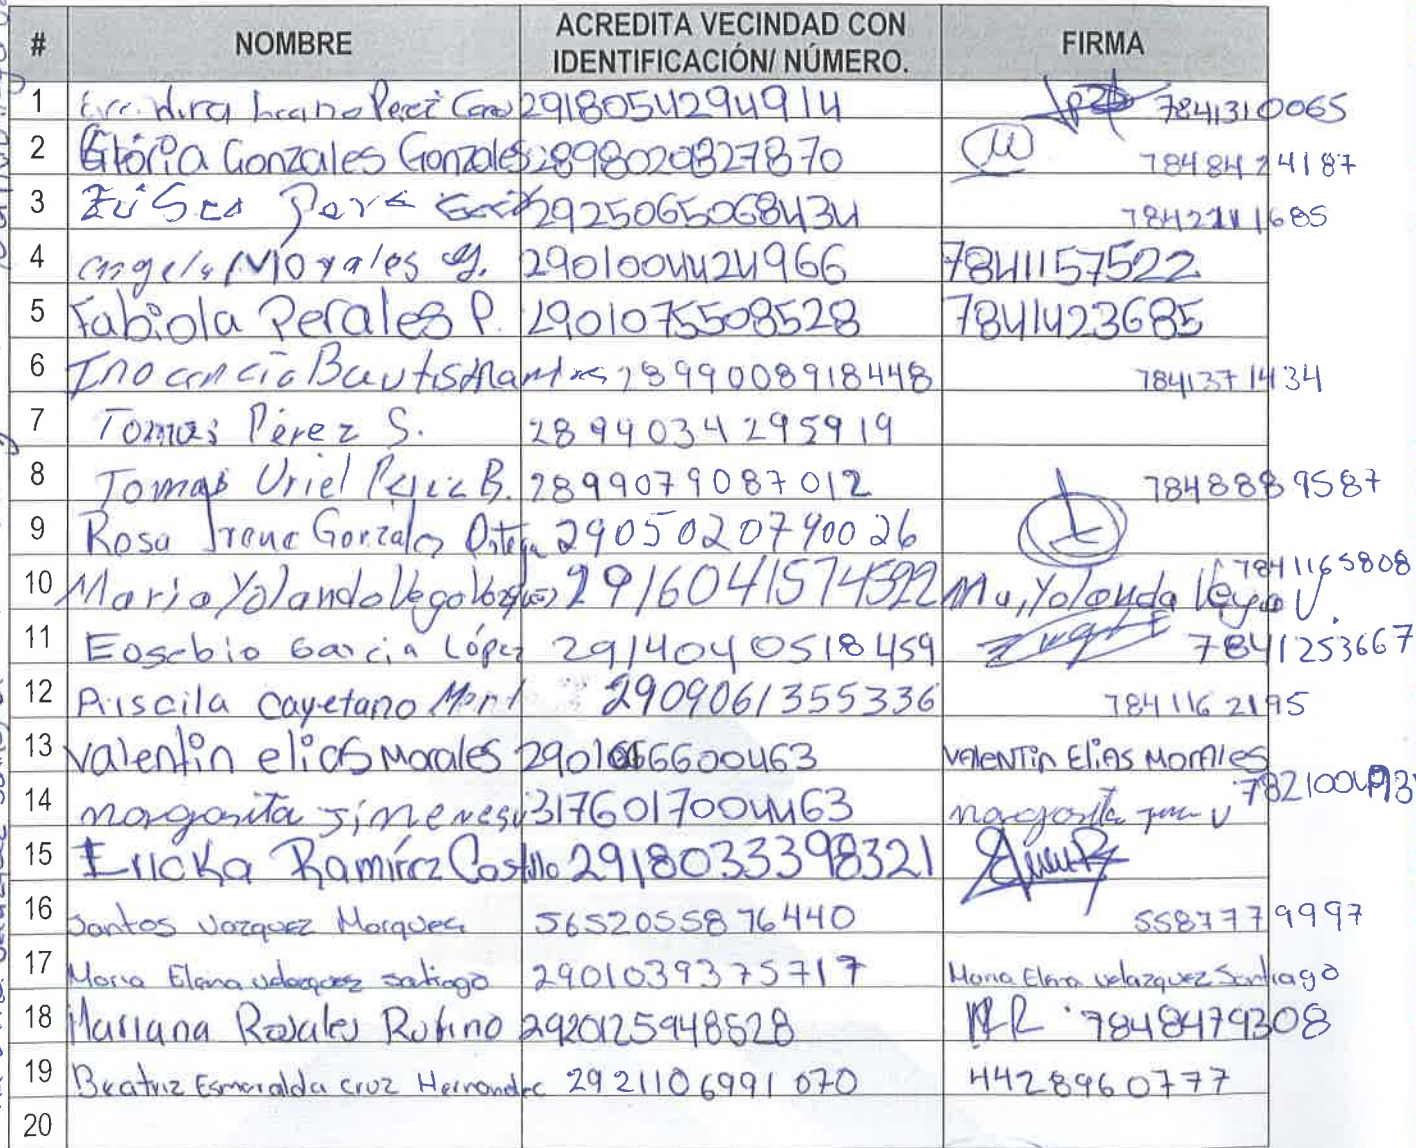 # NOMBRE ACREDITA VECINDAD CON IDENTIFICACIÓN/ NÚMERO. FIRMA
1 2918054294914 7841310065
2 Gloria Gonzales Gonzales 2898020827870 7848424187
3 2925065068434 7842211685
4 angela Morales 2901004424966 7841157522
5 Fabiola Perales P. 2901075508528 7841423685
6 Inocencia Bautista 2899008918448 7841371434
7 Tomas Pérez S. 2899034295919
8 Tomas Uriel B. 2899079087012 7848889587
9 Rosa Irene Gonzales Ortega 2905020790026
10 Maria Yolanda 2916041574522 Ma, Yolanda V. 7841165808
11 Eosebio Garcia López 2914040518459 7841253667
12 Priscila Cayetano 2909061355336 7841162195
13 valentin elias Morales VALENTIN ELIAS MORALES
14 margarita 3176017004463 margarita
15 Ericka Ramírez Castillo 2918033398321
16 Santos Vazquez Marquez 5652055876440 5587779997
17 Maria Elena velazquez satiago 2901039375717 Maria Elena velazquez Santiago
18 Mariana Rosales Rufino 2920125948528 7848479308
19 Beatriz Esmeralda cruz Hernandez 2921106991070 4428960777
20